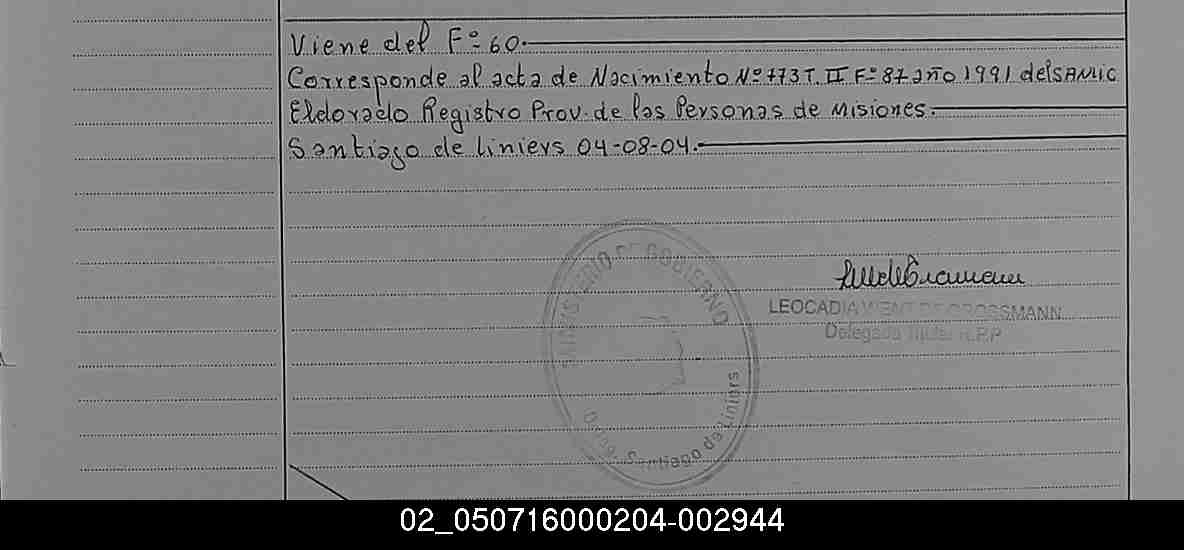 Viene del Fº 60.
Corresponde al acta de Nacimiento Nº 773 T. II Fº 87 año 1991 del SAMIC
Eldorado Registro Prov. de las Personas de Misiones.
Santiago de Liniers 04-08-04.
MINISTERIO DE GOBIERNO
LEOCADIA WENT DE GROSSMANN
Delegada Titular R.P.P
Deleg. Santiago de Liniers
02_050716000204-002944